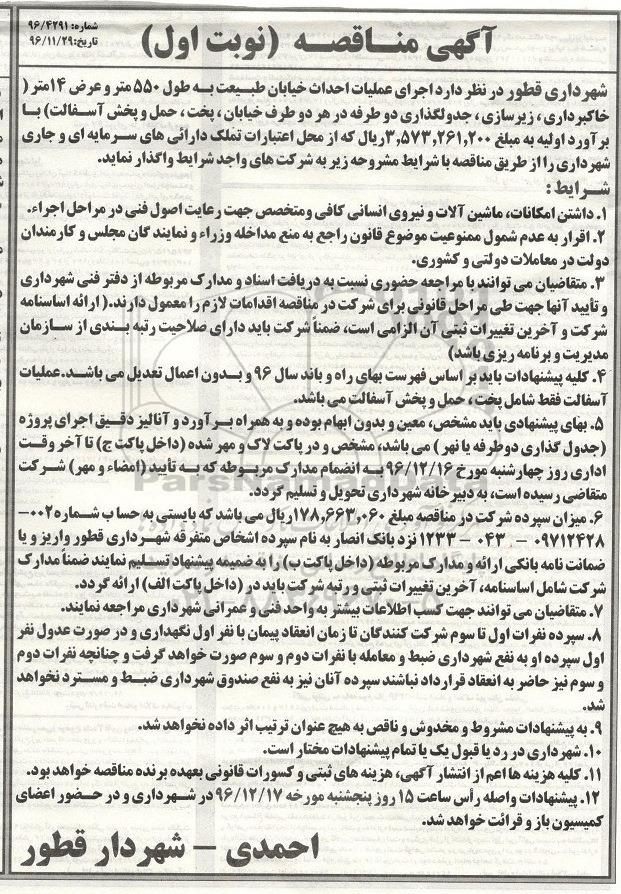 آگهی مناقصه (نوبت اول)
شماره: ۹۶/۴۲۹۱
تاریخ: ۹۶/۱۱/۲۹
شهرداری قطور در نظر دارد اجرای عملیات احداث خیابان طبیعت به طول ۵۵۰ متر و عرض ۱۴ متر (
خاکبرداری ، زیرسازی ، جدولگذاری دو طرفه در هر دو طرف خیابان ، پخت ، حمل و پخش آسفالت) با
برآورد اولیه به مبلغ ۳,۵۷۳,۲۶۱,۲۰۰ریال که از محل اعتبارات تملک دارائی های سرمایه ای و جاری
شهرداری را از طریق مناقصه با شرایط مشروحه زیر به شرکت های واجد شرایط واگذار نماید.
شرایط :
۱. داشتن امکانات، ماشین آلات و نیروی انسانی کافی و متخصص جهت رعایت اصول فنی در مراحل اجراء.
۲. اقرار به عدم شمول ممنوعیت موضوع قانون راجع به منع مداخله وزراء و نمایند گان مجلس و کارمندان
دولت در معاملات دولتی و کشوری.
۳. متقاضیان می توانند با مراجعه حضوری نسبت به دریافت اسناد و مدارک مربوطه از دفتر فنی شهرداری
و تأیید آنها جهت طی مراحل قانونی برای شرکت در مناقصه اقدامات لازم را معمول دارند.( ارائه اساسنامه
شرکت و آخرین تغییرات ثبتی آن الزامی است، ضمناً شرکت باید دارای صلاحیت رتبه بندی از سازمان
مدیریت و برنامه ریزی باشد)
۴. کلیه پیشنهادات باید بر اساس فهرست بهای راه و باند سال ۹۶ و بدون اعمال تعدیل می باشد.عملیات
آسفالت فقط شامل پخت ، حمل و پخش آسفالت می باشد.
۵. بهای پیشنهادی باید مشخص، معین و بدون ابهام بوده و به همراه برآورد و آنالیز دقیق اجرای پروژه
(جدول گذاری دوطرفه یا نهر ) می باشد، مشخص و در پاکت لاک و مهر شده (داخل پاکت ج) تا آخر وقت
اداری روز چهارشنبه مورخ ۹۶/۱۲/۱۶ به انضمام مدارک مربوطه که به تأیید (امضاء و مهر) شرکت
متقاضی رسیده است، به دبیرخانه شهرداری تحویل و تسلیم گردد.
۶. میزان سپرده شرکت در مناقصه مبلغ ۱۷۸,۶۶۳,۰۶۰ریال می باشد که بایستی به حساب شماره۰۰۲-
۰۹۷۱۲۴۲۸ - ۰۴۳ - ۱۲۳۳ نزد بانک انصار به نام سپرده اشخاص متفرقه شهرداری قطور واریز و یا
ضمانت نامه بانکی ارائه و مدارک مربوطه (داخل پاکت ب) را به ضمیمه پیشنهاد تسلیم نمایند ضمناً مدارک
شرکت شامل اساسنامه، آخرین تغییرات ثبتی و رتبه شرکت باید در (داخل پاکت الف) ارائه گردد.
۷. متقاضیان می توانند جهت کسب اطلاعات بیشتر به واحد فنی و عمرانی شهرداری مراجعه نمایند.
۸. سپرده نفرات اول تا سوم شرکت کنندگان تا زمان انعقاد پیمان با نفر اول نگهداری و در صورت عدول نفر
اول سپرده او به نفع شهرداری ضبط و معامله با نفرات دوم و سوم صورت خواهد گرفت و چنانچه نفرات دوم
و سوم نیز حاضر به انعقاد قرارداد نباشند سپرده آنان نیز به نفع صندوق شهرداری ضبط و مسترد نخواهد
شد.
۹. به پیشنهادات مشروط و مخدوش و ناقص به هیچ عنوان ترتیب اثر داده نخواهد شد.
۱۰. شهرداری در رد یا قبول یک یا تمام پیشنهادات مختار است.
۱۱. کلیه هزینه ها اعم از انتشار آگهی، هزینه های ثبتی و کسورات قانونی بعهده برنده مناقصه خواهد بود.
۱۲. پیشنهادات واصله رأس ساعت ۱۵ روز پنجشنبه مورخه ۹۶/۱۲/۱۷در شهرداری و در حضور اعضای
کمیسیون باز و قرائت خواهد شد.
احمدی - شهردار قطور